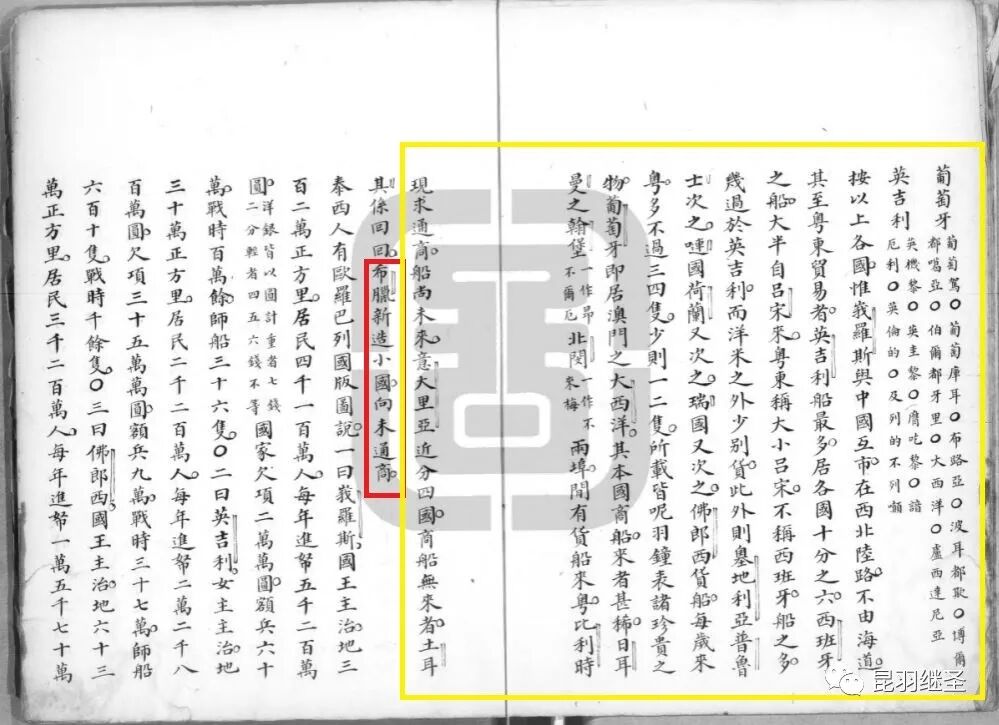 葡萄牙 葡萄駕〇葡萄庫耳〇布路亞〇波耳都欺〇博爾
都噶亞〇伯爾都牙里〇大西洋〇盧西達尼亞
英吉利 英機黎〇英圭黎〇膺吃黎〇諳
厄利〇英倫的〇及列的不列顛
按以上各國惟峩羅斯與中國互市在西北陸路不由海道
其至粵東貿易者英吉利船最多居各國十分之六西班牙
之船大半自呂宋來粵東稱大小呂宋不稱西班牙船之多
幾過於英吉利而洋米之外少別貨此外則墺地利亞普魯
士次之嗹國荷蘭又次之瑞國又次之佛郎西貨船每歲來
粵多不過三四隻少則一二隻所載皆呢羽鐘表諸珍貴之
物葡萄牙即居澳門之大西洋其本國商船來者甚稀日耳
曼之翰堡 一作昂不爾厄 北閔 一作不來梅 兩埠間有貨船來粵比利時
現求通商船尚未來意大里亞近分四國商船無來者土耳
其係回回布臘新造小國向未通商
泰西人有歐羅巴列國版圖說一曰峩羅斯國王主治地三
百二萬正方里居民四千一百萬人每年進帑五千二百萬
圓 洋銀皆以圓計重者七錢二分輕者四五六錢不等 國家欠項二萬萬圓額兵六十
萬戰時百萬餘師船三十六隻〇二曰英吉利女主主治地
三十萬正方里居民二千二百萬人每年進帑二萬二千八
百萬圓欠項三十五萬萬圓額兵九萬戰時三十七萬師船
六百十隻戰時千餘隻〇三曰佛郎西國王主治地六十三
萬正方里居民三千二百萬人每年進帑一萬五千七十萬
昆羽继圣